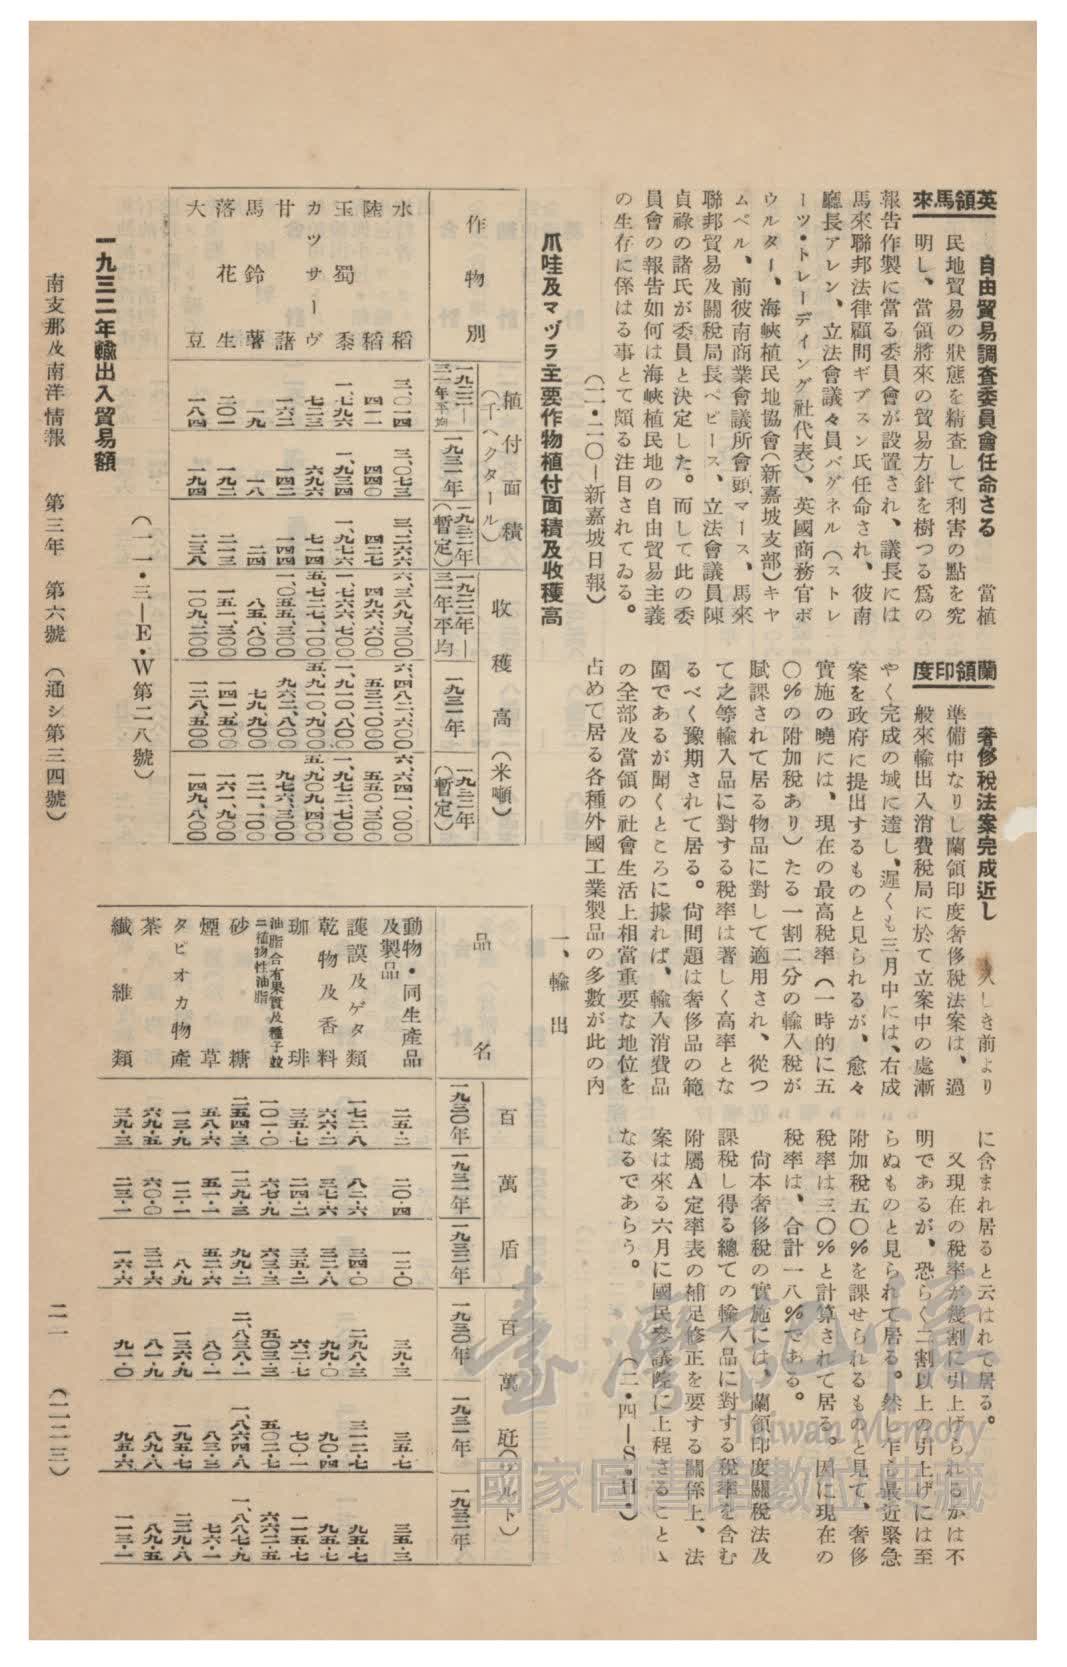 英領馬來
自由貿易調査委員會任命さる　當植
民地貿易の狀態を精査して利害の點を究
明し、當領將來の貿易方針を樹つる爲の
報告作製に當る委員會が設置され、議長には
馬來聯邦法律顧問ギブスン氏任命され、彼南
廳長アレン、立法會議々員バグネル（ストレ
ーツ・トレーディング社代表）、英國商務官ボ
ウルター、海峽植民地協會（新嘉坡支部）キヤ
ムベル、前彼南商業會議所會頭マース、馬來
聯邦貿易及關稅局長ペピース、立法會議員陳
貞祿の諸氏が委員と決定した。而して此の委
員會の報告如何は海峽植民地の自由貿易主義
の生存に係はる事とて頗る注目されてゐる。
（二・二〇―新嘉坡日報）
蘭領印度
奢侈稅法案完成近し　久しき前より
準備中なりし蘭領印度奢侈稅法案は、過
般來輸出入消費稅局に於て立案中の處漸
やく完成の域に達し、遲くも三月中には、右成
案を政府に提出するものと見られるが、愈々
實施の曉には、現在の最高稅率（一時的に五
〇％の附加稅あり）たる一割二分の輸入稅が
賦課されて居る物品に對して適用され、從つ
て之等輸入品に對する稅率は著しく高率とな
るべく豫期されて居る。尙問題は奢侈品の範
圍であるが聞くところに據れば、輸入消費品
の全部及當領の社會生活上相當重要な地位を
占めて居る各種外國工業製品の多數が此の內
に含まれ居ると云はれて居る。
又現在の稅率が幾割に引上げられるかは不
明であるが、恐らく二割以上の引上げには至
らぬものと見られて居る。然し乍ら最近緊急
附加稅五〇％を課せられるものと見て、奢侈
稅率は三〇％と計算されて居る。因に現在の
稅率は、合計一八％である。
尙本奢侈稅の實施には、蘭領印度關稅法及
課稅し得る總ての輸入品に對する稅率を含む
附屬A定率表の補足修正を要する關係上、法
案は來る六月に國民參議院に上程さることゝ
なるであらう。
（二・四―S・H・）
爪哇及マヅラ主要作物植付面積及收穫高
作物別　植付面積（千ヘクタール）　收穫高（米噸）
一九二二―三一年平均　一九三一年　一九三二年（暫定）　一九二二年―三一年平均　一九三一年　一九三二年（暫定）
水稻　三、〇一四　三、〇七三　三、二六六　六、三八九、三〇〇　六、四八二、六〇〇　六、六四一、〇〇〇
陸稻　四一一　四四〇　四二七　四九六、六〇〇　五三二、〇〇〇　五五〇、三〇〇
玉蜀黍　一、七九六　一、九三四　一、九七六　一、七六六、七〇〇　一、九一〇、八〇〇　一、九七二、七〇〇
カツサーヴ　七二三　六九六　七一四　五、七二七、一〇〇　五、九一〇、九〇〇　五、九〇九、四〇〇
甘藷　一六二　一四二　一四四　一、〇五五、三〇〇　九六二、八〇〇　九七六、三〇〇
馬鈴薯　一九　一八　二四　八五、八〇〇　七九、九〇〇　一二一、一〇〇
落花生　二〇一　一九二　二一三　一五一、三〇〇　一四一、五〇〇　一六一、九〇〇
大豆　一八四　一九四　二三八　一〇九、二〇〇　一二八、五〇〇　一四九、八〇〇
（一一・三―E・W第二八號）
一九三二年輸出入貿易額
一、輸出
品名　百萬盾　百萬瓩（グルト）
一九三〇年　一九三一年　一九三二年　一九三〇年　一九三一年　一九三二年
動物・同生產品及製品　二五・二　二〇・四　一二・〇　三九・三　三五・七　三五・三
護謨及ゲタ類　一七二・八　八二・六　三四・〇　二九八・三　三一二・七　九五・七
乾物及香料　六六・二　三七・六　三二・八　九九・〇　九〇・四　九五・七
珈琲　三五・七　二四・二　三五・二　六二・七　七〇・一　一一五・七
油脂含有果實及種子竝ニ植物性油脂　一〇一・〇　六七・九　六三・三　五〇三・三　五〇二・七　六六二・五
砂糖　二五四・三　一二九・三　九九・二　二、八三八・二　一、八六四・八　一、八八七・九
煙草　五八・六　五一・一　五二・六　八〇・一　八三・三　七六・一
タピオカ物產　一三・九　一二・一　八・九　一三六・九　一九五・七　二三九・八
茶　六九・五　六〇・〇　三二・六　八一・九　八九・八　八九・五
纎維類　三九・三　二三・一　一六・六　九一・〇　九五・六　一一三・一
南支那及南洋情報　第三年　第六號　（通シ第三四號）　二一　（二二三）
臺灣記憶
Taiwan Memory
國家圖書館數位典藏